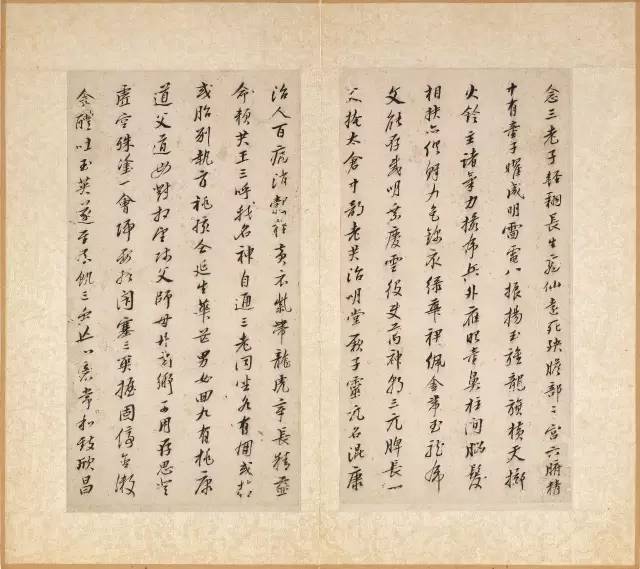 念三老子輕翔長生高仙遠死殃膽部之宮六腑精
中有童子曜威明雷電八振揚玉旌龍旗橫天擲
火鈴主諸氣力攝虎兵外應眼童鼻柱間腦髮
相扶亦俱鮮九色錦衣綠華裙佩金帶玉龍虎
文能存威明乘慶雲役使萬神朝三元脾長一
尺掩太倉中部老君治明堂厥字靈元名混康
治人百病消穀糧黃衣紫帶龍虎章長精益
命賴君王三呼我名神自通三老同坐各有朋或精
或胎別執方桃孩合延生華芒男女回九有桃康
道父道母對相望師父師母丹玄鄉可用存思登
虛空殊塗一會歸要終閉塞三關握固停含漱
金醴吞玉英遂至不飢三蟲亡心意常和致欣昌